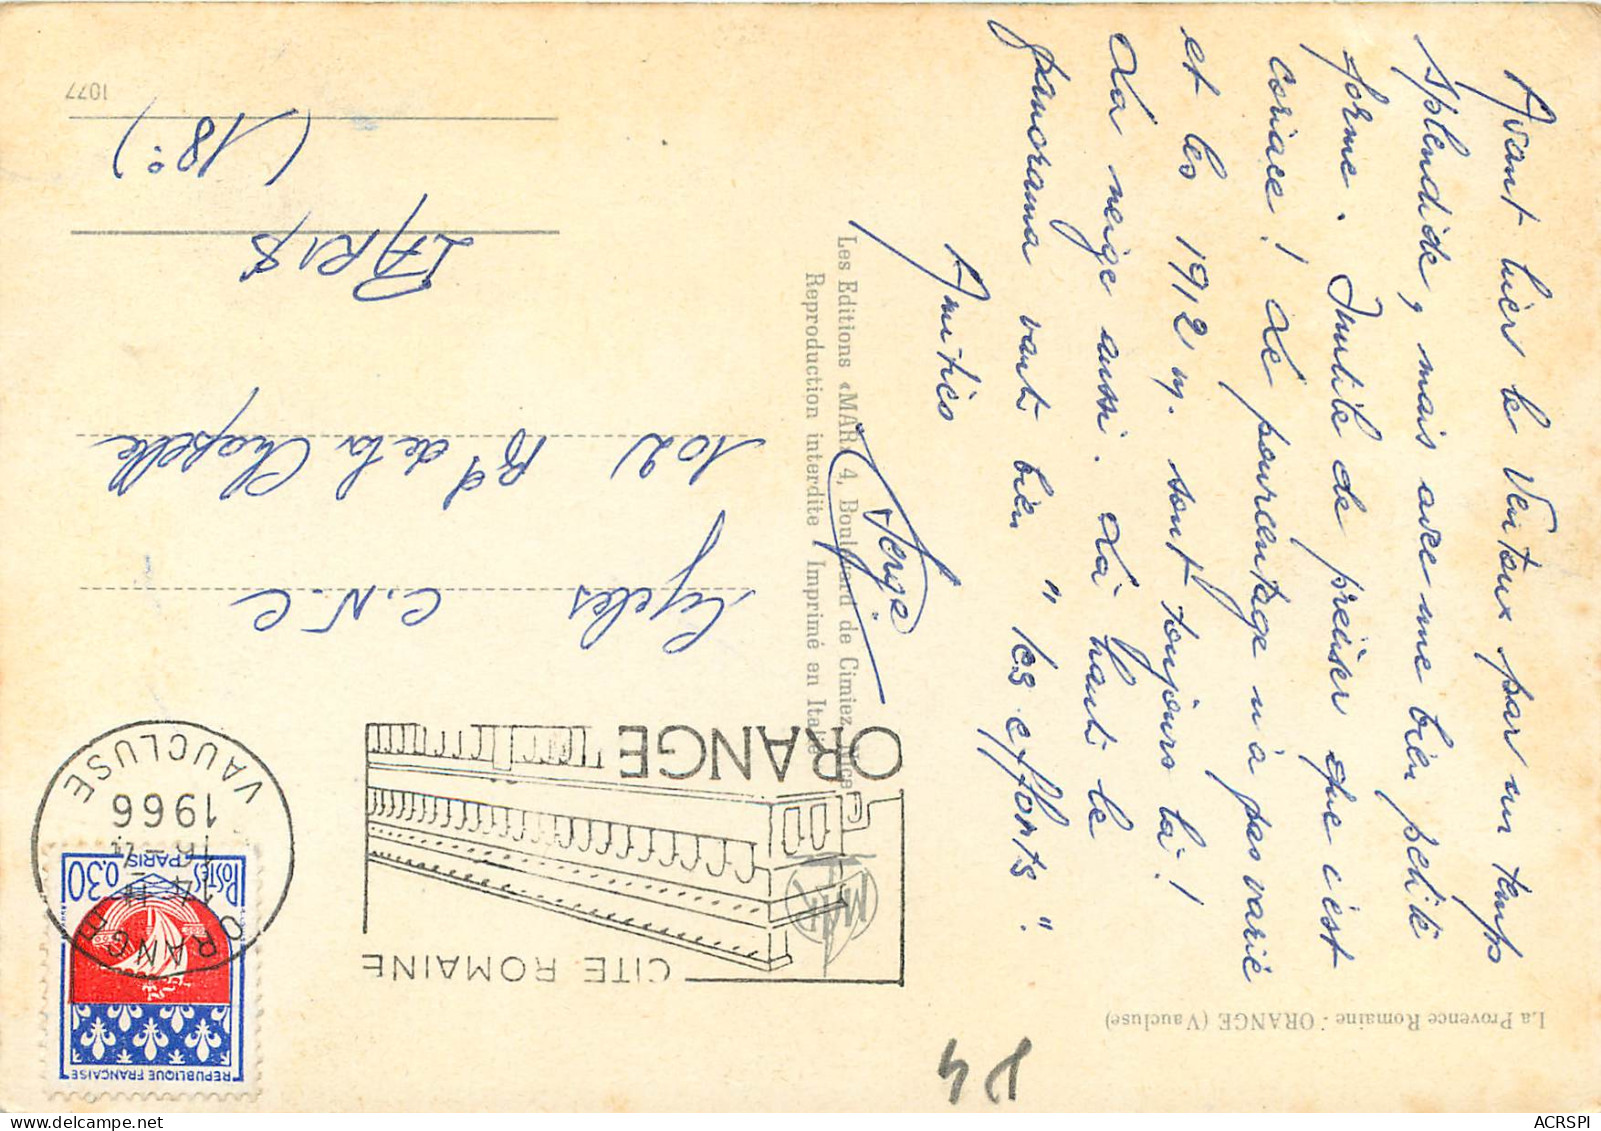 Avant hier le Ventoux par un temps
splendide, mais avec une bien petite
forme. Inutile de préciser que c'est
coriace ! Le pourcentage n'a pas varié
et les 1912 m. sont toujours là !
La neige aussi. Là haut le
panorama vaut bien " les efforts ".
Amitiés
Serge
La Provence Romaine - ORANGE (Vaucluse)
Les Editions «MAR» 4, Boulevard de Cimiez, Nice
Reproduction interdite Imprimé en Italie
MAR
ORANGE
CITE ROMAINE
ORANGE
14 H
16 - 4
1966
VAUCLUSE
REPUBLIQUE FRANÇAISE
POSTES
0,30
PARIS
Cycles C.N.C
102 Bd de la Chapelle
PARIS
(18°)
1077
ACRSPI